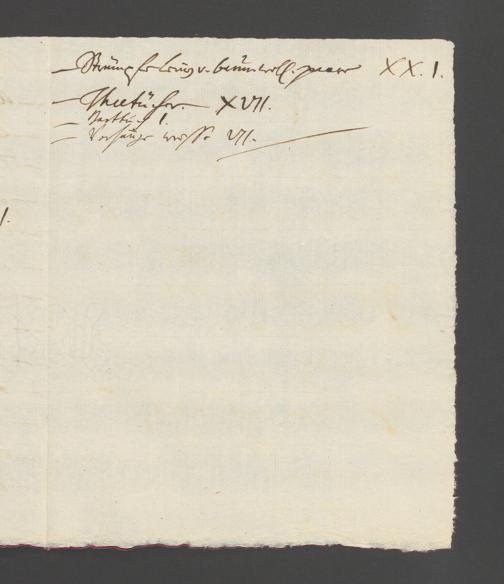 — Strümpfe leinz u. baumwoll. paar XX. I.
— Theetücher. — XVII.
— Barttuch I.
— Vorhänge weiße VII.
I.